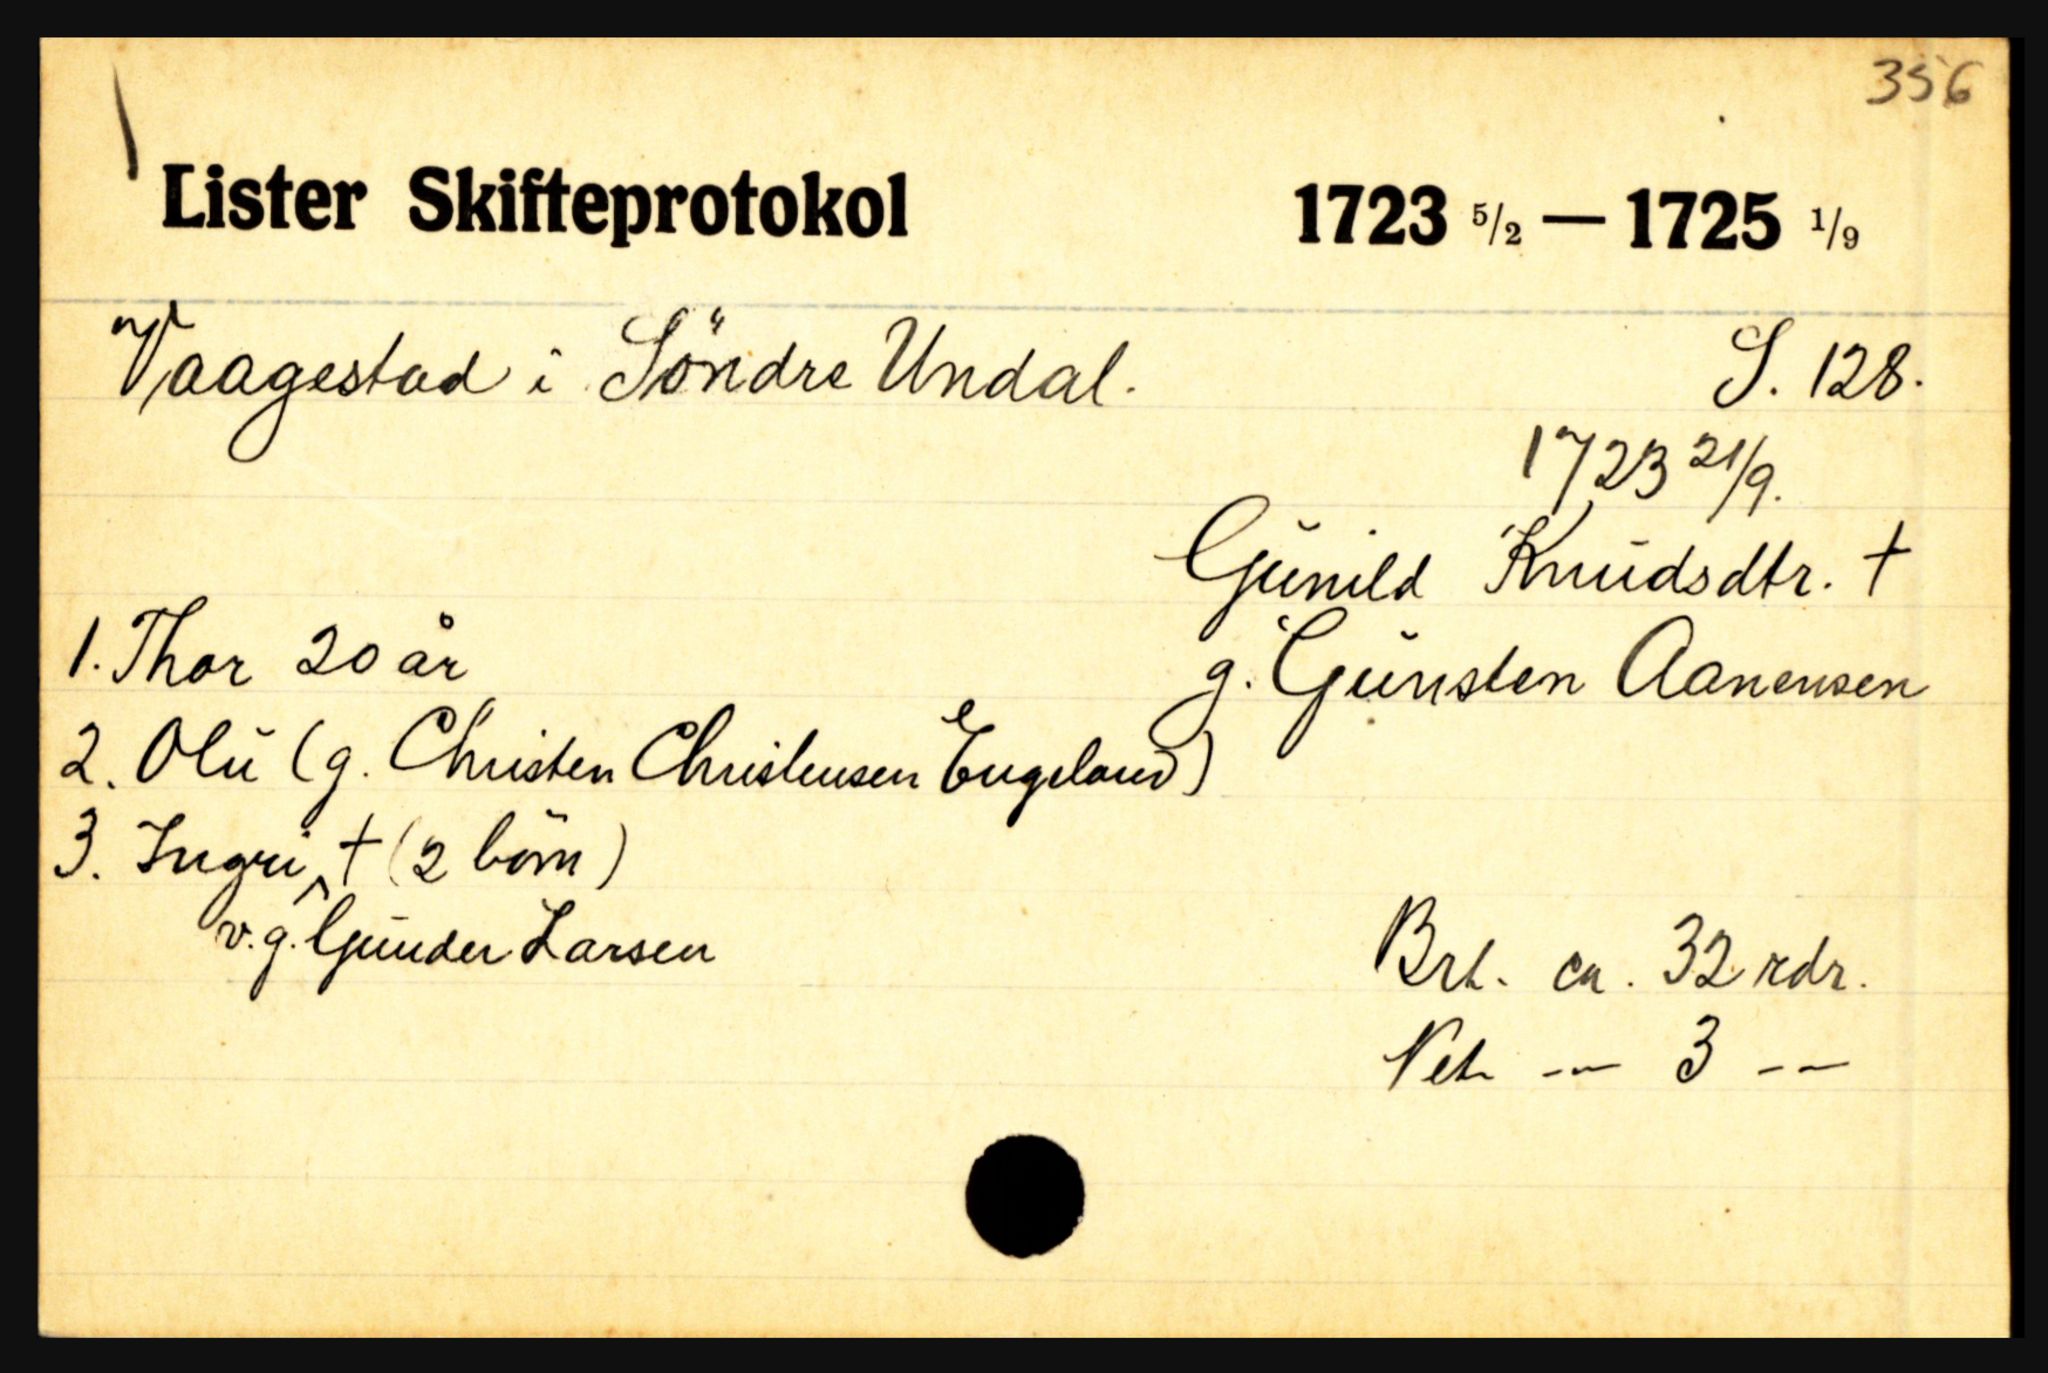 356
Lister Skifteprotokol 1723 5/2 — 1725 1/9
Vaagestad i Söndre Undal. S. 128.
1723 21/9.
Gŭnild Knŭdsdtr. †
g. Gŭnsten Aanensen
1. Thor 20 år
2. Olŭ (g. Christen Christensen Engeland)
3. Ingri ^ † (2 börn)
v.g. Gŭnder Larsen
Brt. ca. 32 rdr.
Net. -- 3 --